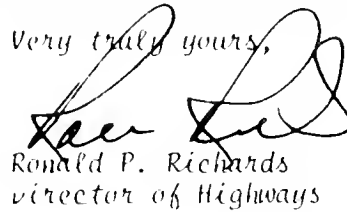 Very truly yours,
Ronald P. Richards
Director of Highways